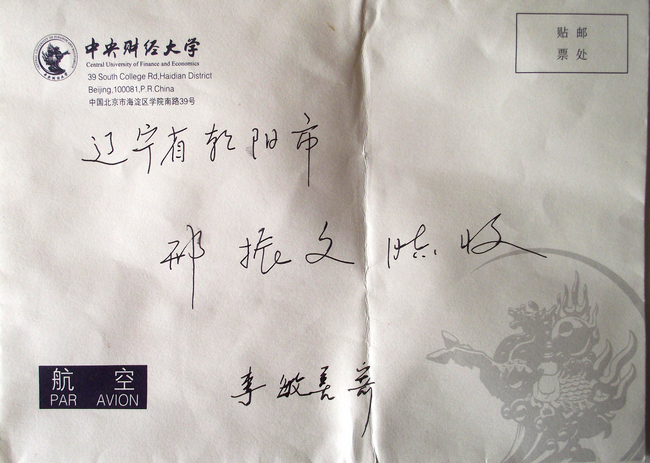 中央财经大学
Central University of Finance and Economics
39 South College Rd,Haidian District
Beijing,100081,P.R.China
中国北京市海淀区学院南路39号
贴 邮
票 处
辽宁省朝阳市
邢振文 收
航 空
PAR AVION
李敏